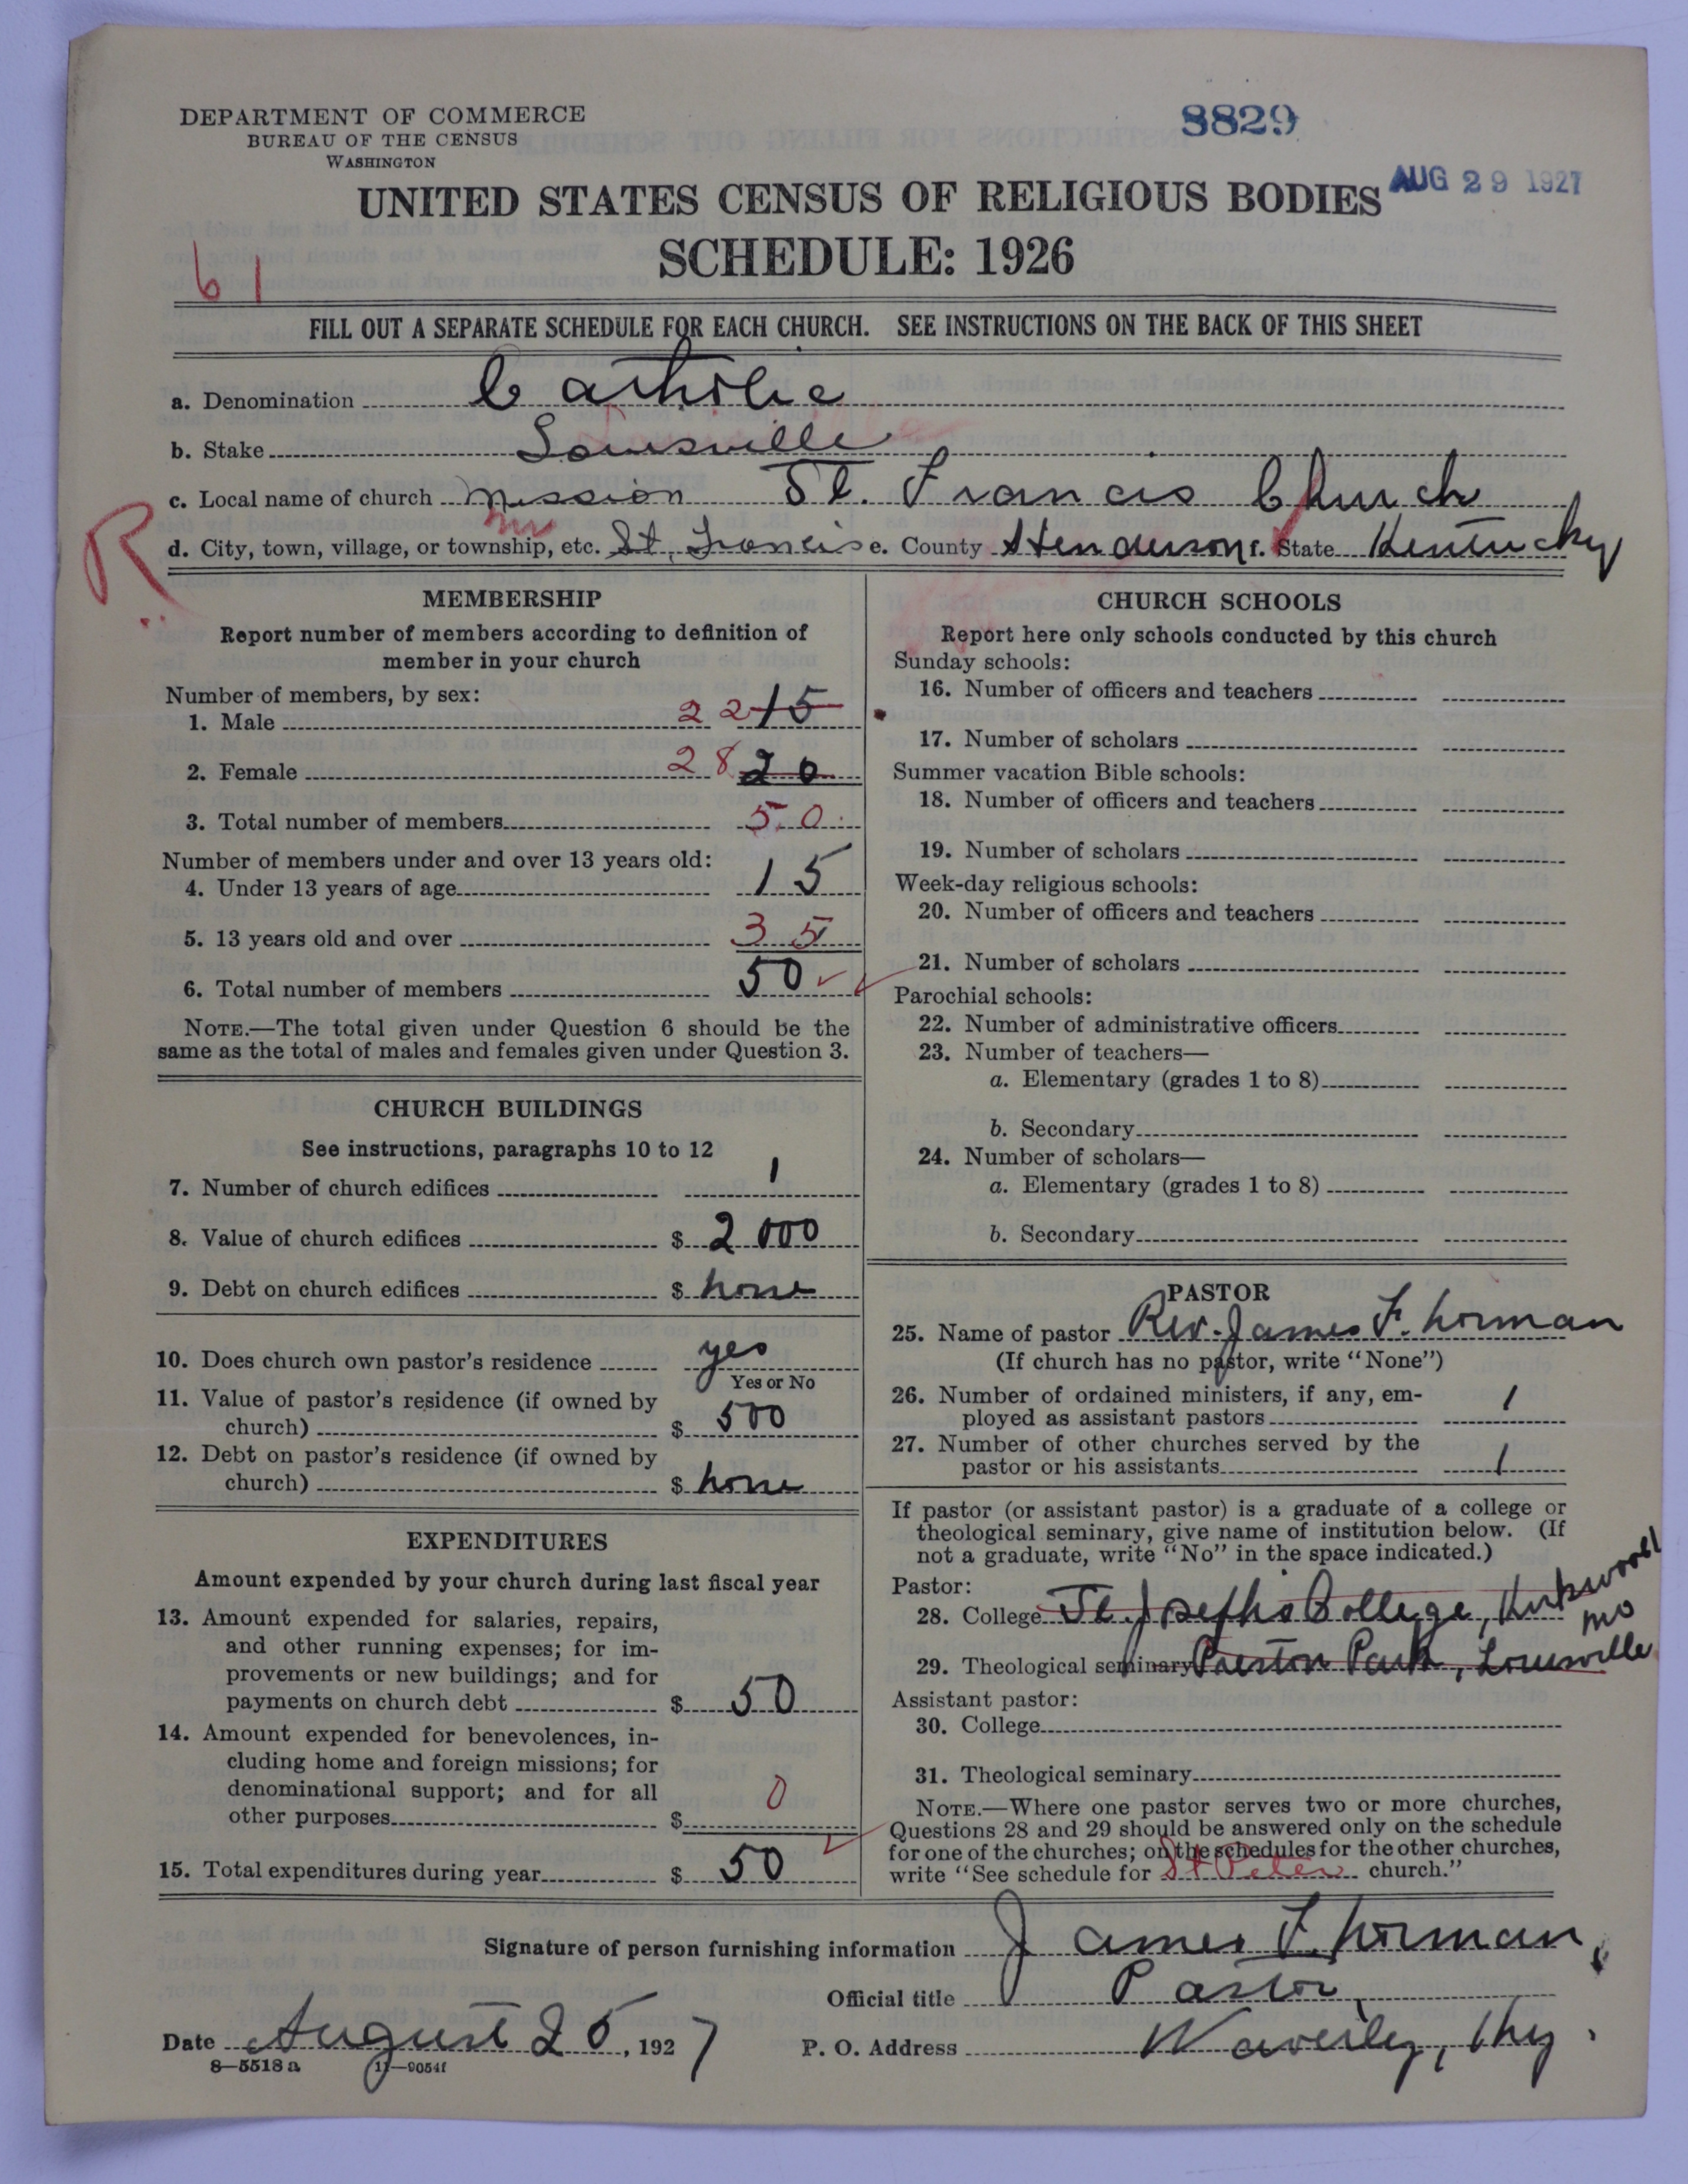 DEPARTMENT OF COMMERCE
BUREAU OF THE CENSUS
WASHINGTON
8829
AUG 29 1927
UNITED STATES CENSUS OF RELIGIOUS BODIES
SCHEDULE: 1926
61
FILL OUT A SEPARATE SCHEDULE FOR EACH CHURCH. SEE INSTRUCTIONS ON THE BACK OF THIS SHEET
a. Denomination Catholic
b. Stake Louisville
c. Local name of church Mission St. Francis Church
R
d. City, town, village, or township, etc. St. Francis e. County Henderson f. State Kentucky
MEMBERSHIP
Report number of members according to definition of
member in your church
Number of members, by sex:
1. Male 22 15
2. Female 28 20
3. Total number of members 50
Number of members under and over 13 years old:
4. Under 13 years of age 15
5. 13 years old and over 35
6. Total number of members 50
NOTE.—The total given under Question 6 should be the
same as the total of males and females given under Question 3.
CHURCH BUILDINGS
See instructions, paragraphs 10 to 12
7. Number of church edifices 1
8. Value of church edifices $ 2000
9. Debt on church edifices $ none
10. Does church own pastor's residence yes
Yes or No
11. Value of pastor's residence (if owned by
church) $ 500
12. Debt on pastor's residence (if owned by
church) $ none
EXPENDITURES
Amount expended by your church during last fiscal year
13. Amount expended for salaries, repairs,
and other running expenses; for im-
provements or new buildings; and for
payments on church debt $ 50
14. Amount expended for benevolences, in-
cluding home and foreign missions; for
denominational support; and for all
other purposes $ 0
15. Total expenditures during year $ 50
CHURCH SCHOOLS
Report here only schools conducted by this church
Sunday schools:
16. Number of officers and teachers
17. Number of scholars
Summer vacation Bible schools:
18. Number of officers and teachers
19. Number of scholars
Week-day religious schools:
20. Number of officers and teachers
21. Number of scholars
Parochial schools:
22. Number of administrative officers
23. Number of teachers—
a. Elementary (grades 1 to 8)
b. Secondary
24. Number of scholars—
a. Elementary (grades 1 to 8)
b. Secondary
PASTOR
25. Name of pastor Rev. James F. Norman
(If church has no pastor, write "None")
26. Number of ordained ministers, if any, em-
ployed as assistant pastors 1
27. Number of other churches served by the
pastor or his assistants 1
If pastor (or assistant pastor) is a graduate of a college or
theological seminary, give name of institution below. (If
not a graduate, write "No" in the space indicated.)
Pastor:
28. College St. Joseph's College, Kirkwood
Mo
29. Theological seminary Preston Park, Louisville
Assistant pastor:
30. College
31. Theological seminary
NOTE.—Where one pastor serves two or more churches,
Questions 28 and 29 should be answered only on the schedule
for one of the churches; on the schedules for the other churches,
write "See schedule for St Peter church."
Signature of person furnishing information James F. Norman,
Official title Pastor
Date August 25, 1927 P. O. Address Waverley, Ky.
8—5518 a 11—9054f